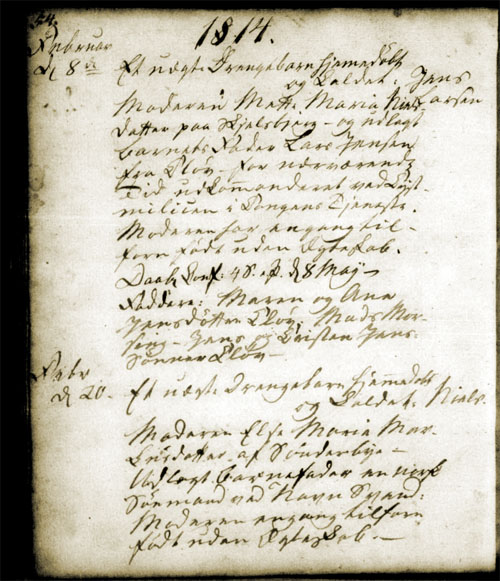 44.
1814.
Februar
d 8de Et uægte Drengebarn hjemedøbt
og kaldet: Jens
Moderen Mette Maria Niels Larsen
datter paa Skjelsbjerg - og udlagt
barnets Fader Lars Jensen
fra Kløv - for nærværende
Tid udkomanderet ved Kyst-
milicen i Kongens Tjeneste.
Moderen har engang til-
forn født uden Egteskab.
Daabs Conf: 4 S. e. P. d 8 May -
Faddere: Maren og Ane
Jensdøttre Kløv, Mads Mor-
- Jens og Christen Jens-
Sønner Kløv -
Febr
d 20. Et uægte Drengebarn hjemmedøbt
og kaldet: Niels
Moderen Else Marie Mar-
kusdatter af Sønderbye -
Udlagt Barnefader en norsk
Sømand ved Navn Svend:
Moderen engang tilforn
født uden Egteskab. -